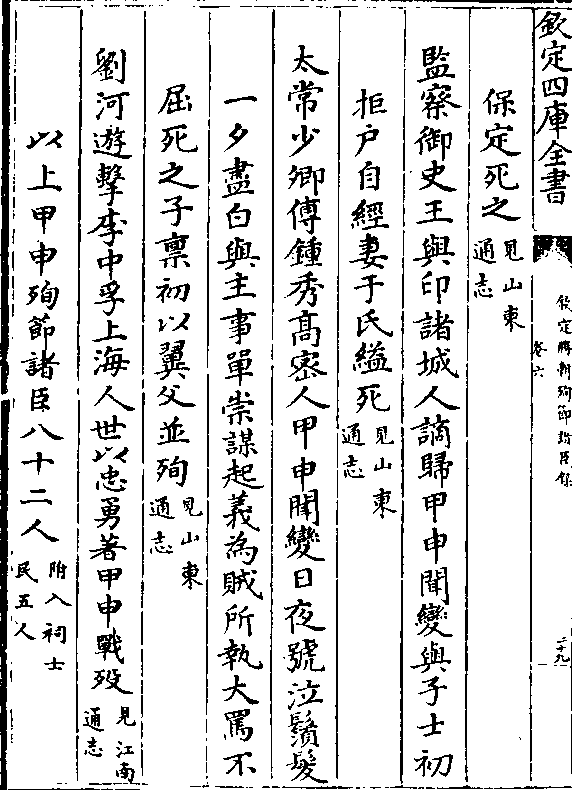 欽定四庫全書
欽定勝朝殉節諸臣錄
卷六
二十九
保定死之見山東通志
監察御史王與印諸城人謫歸甲申聞變與子士初
拒户自經妻于氏縊死見山東通志
太常少卿傅鍾秀髙宻人甲申聞變日夜號泣鬚髮
一夕盡白與主事單崇謀起義為賊所執大罵不
屈死之子禀初以翼父並殉見山東通志
劉河遊擊李中孚上海人世以忠勇著甲申戰歿見江南通志
以上甲申殉節諸臣八十二人附入祠士民五人